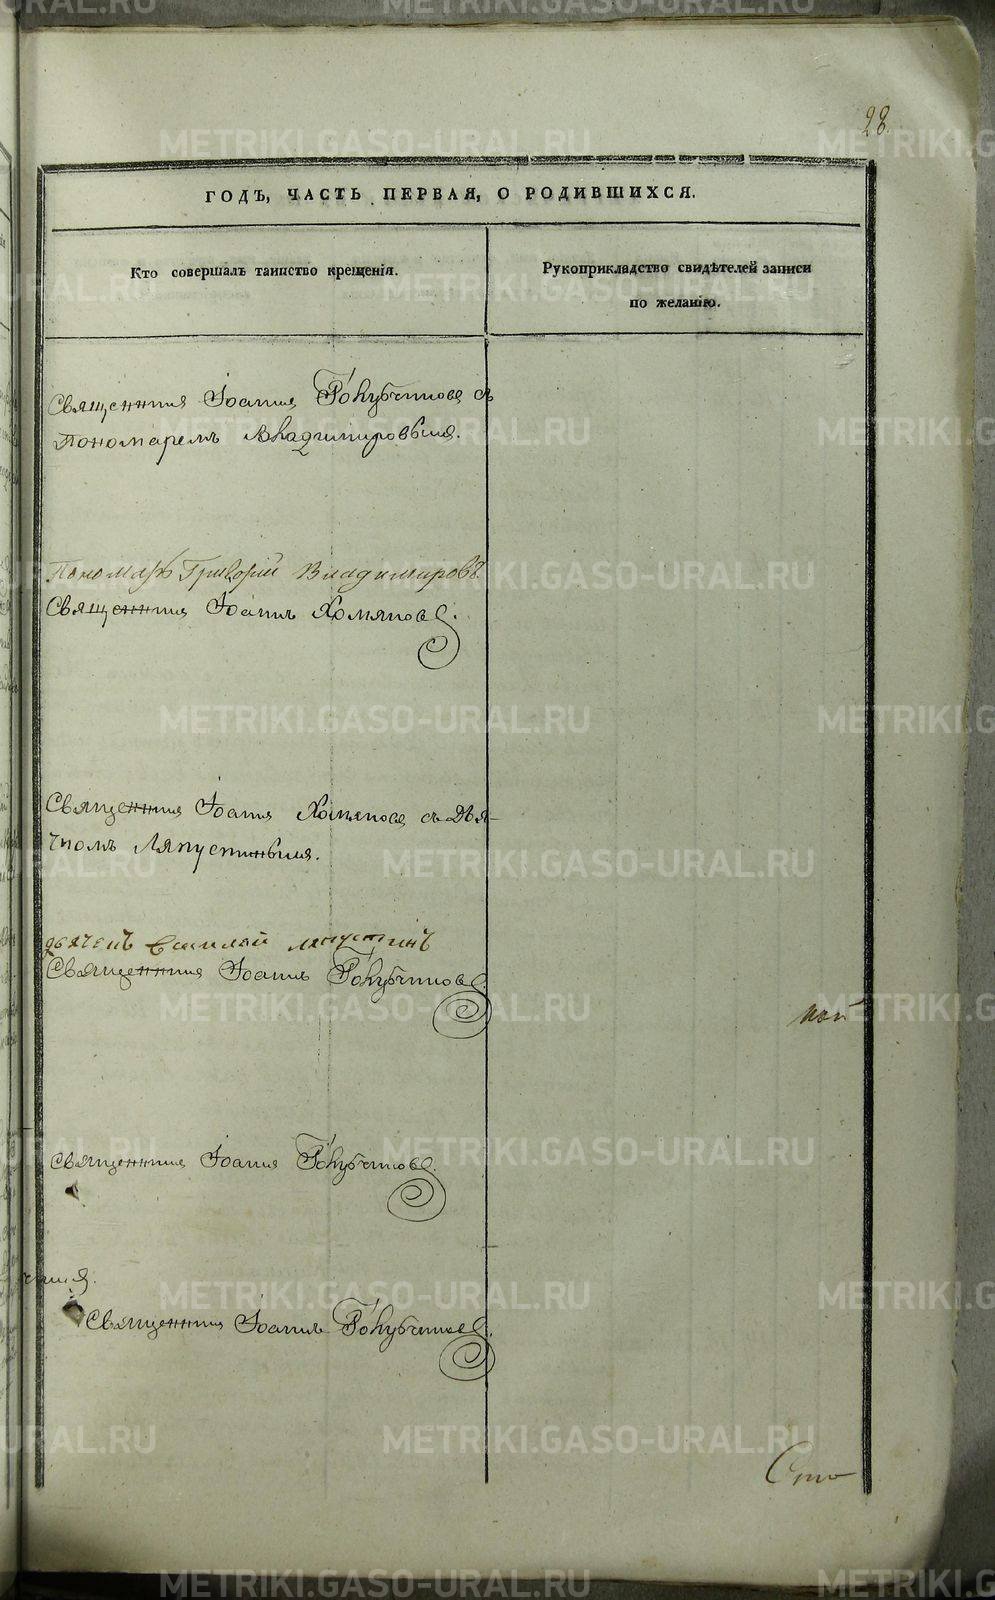 28.
ГОДЪ, ЧАСТЬ ПЕРВАЯ, О РОДИВШИХСЯ.
Кто совершалъ таинство крещенія.
Рукоприкладство свидѣтелей записи
по желанію.
Священникъ Іоаннъ Голубчиковъ съ
Пономаремъ Владимировымъ.
Пономарь Григорій Владимировъ
Священникъ Іоаннъ Хомяковъ.
Священникъ Іоаннъ Хомяковъ съ Дья-
чкомъ Ляпустинымъ.
дьячекъ Василей Ляпустинъ
Священникъ Іоаннъ Голубчиковъ.
Священникъ Іоаннъ Голубчиковъ.
Священникъ Іоаннъ Голубчиковъ.
METRIKI.GASO-URAL.RU